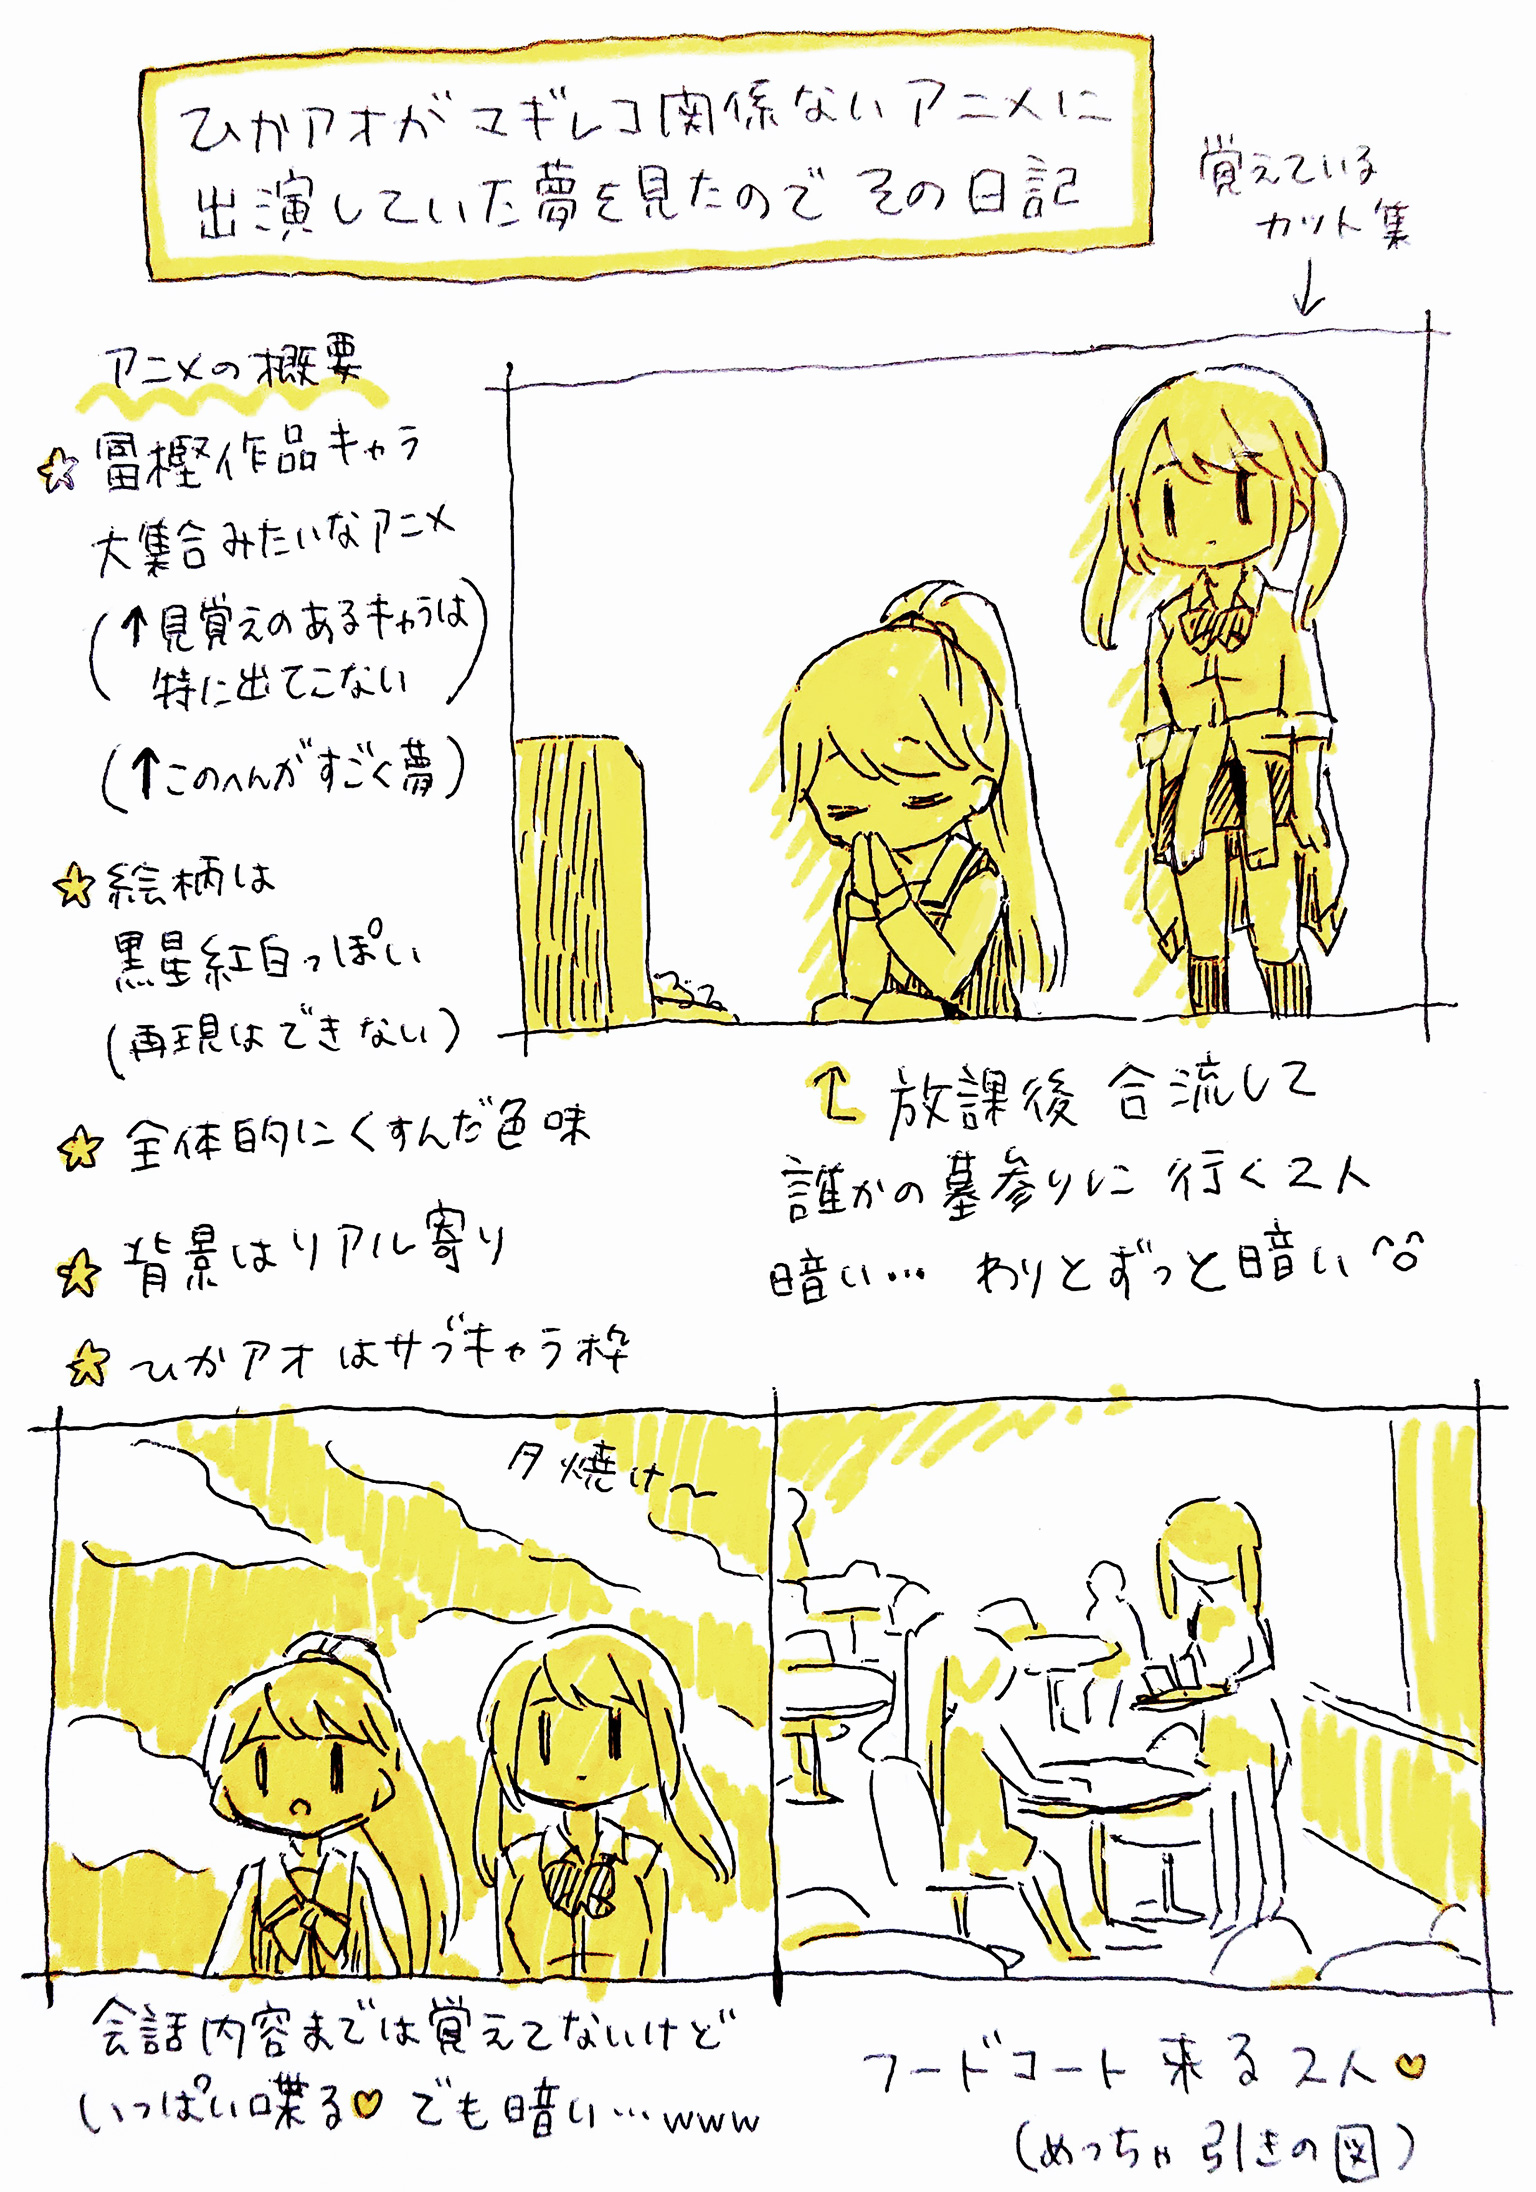 ひかアオがマギレコ関係ないアニメに
出演していた夢を見たのでその日記
覚えている
カット集
↓
アニメの概要
☆冨樫作品キャラ
大集合みたいなアニメ
(↑見覚えのあるキャラは
特に出てこない)
(↑このへんがすごく夢)
☆絵柄は
黒星紅白っぽい
(再現はできない)
☆全体的にくすんだ色味
☆背景はリアル寄り
☆ひかアオはサブキャラ枠
放課後 合流して
誰かの墓参りに行く2人
暗い… わりとずっと暗い
夕焼け〜
会話内容までは覚えてないけど
いっぱい喋る♡ でも暗い…www
フードコート来る2人♡
(めっちゃ引きの図)